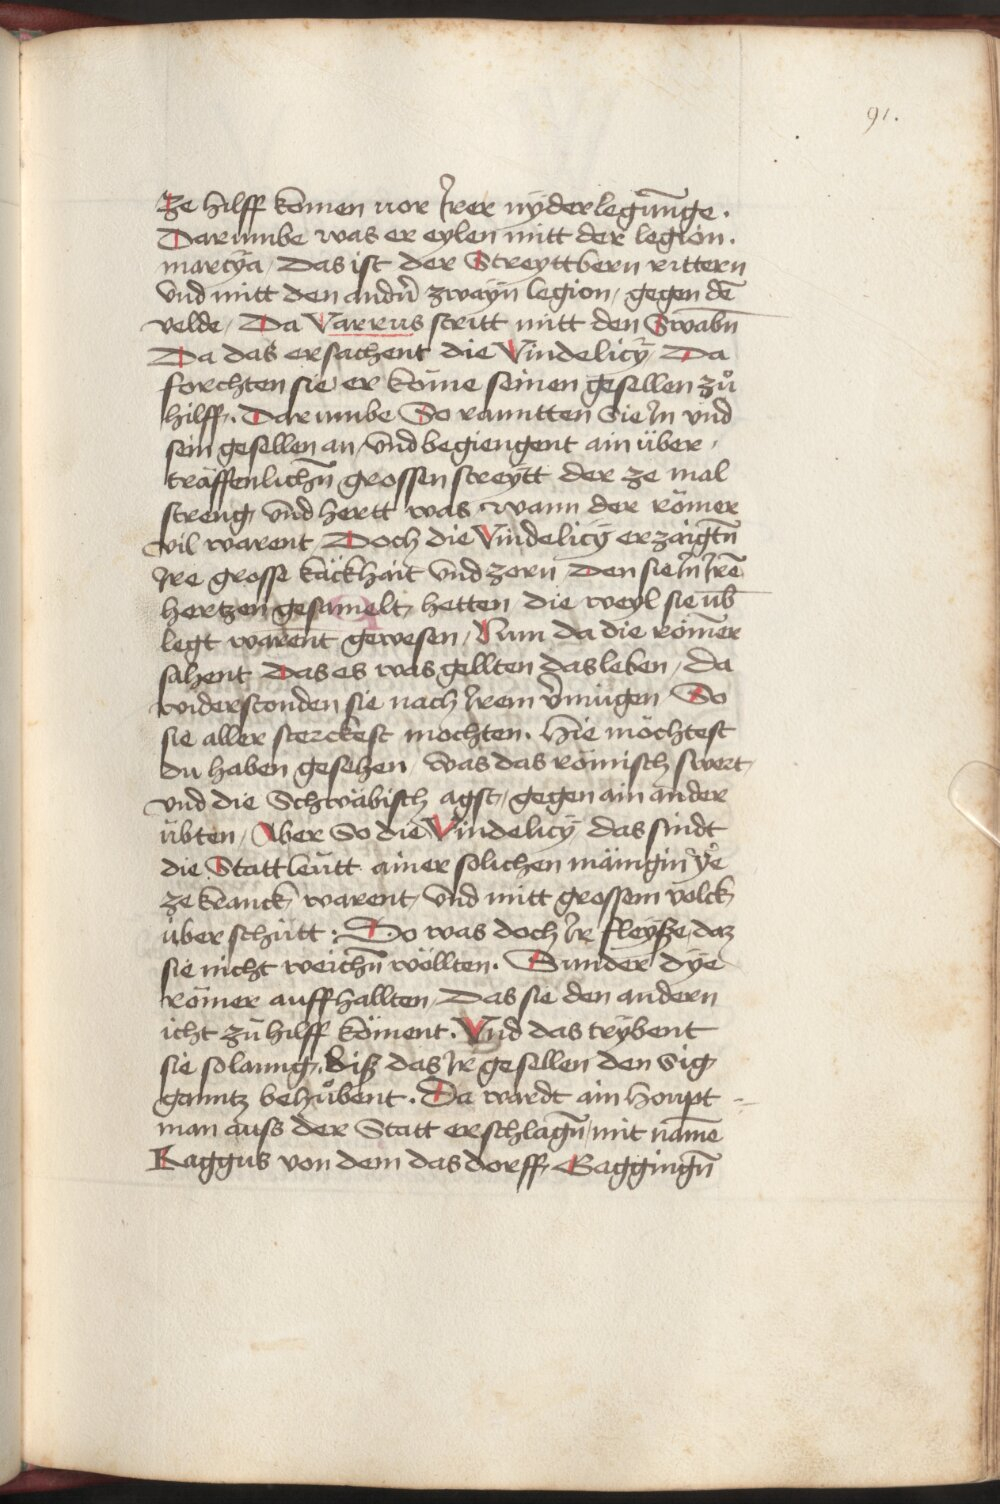 91.
ze hilff komen vor Irer nÿderlegūnge.
Darumbe was er eylen mitt der legion.
martÿa / Das ist der Streyttbern rittern
vnd mitt den andn̄ zwaÿn legion / gegen dē
velde / Da Varrus stritt mitt den Swabn̄
Da das ersachent die Vindelicÿ Da
forchten sie er köme seinen gesellen zů
hilff. Darumbe So ranntten Sie In vnd
sein gesellen an / vnd begiengent ain über /
träffenlichn̄ grossen streytt der ze mal
streng vnd hertt was / wann der römer
vil warent / Doch die Vindelicÿ erzaigtn̄
Ire grosse käckhait vnd zorn / Den sie In Irē
hertzen gesamelt / hetten die weyl sie vb̄
legt warent gewesen / Nun da die römer
sahent Das es was gellten das leben / da
widerstonden sie nach Irem v̄mügen So
sie aller sterckest mochten. Hie möchtest
du haben gesehen / was das römisch swert /
vnd die Schwäbisch agst / gegen ain ander
übten / Aber So die Vindelicÿ das sindt
die Stattleütt ainer solichen mäingin ye
ze kranck warent / vnd mitt grossem volck
überschütt : So was doch Ir fleyße / daz
sie nicht weichn̄ wöllten. Sunder dÿe
römer auffhallten / Das sie den andern
icht zu hilff köment. Vnd das trÿbent
sie solanng / biß das Ir gesellen den Sig
ganntz behůbent. Da wardt ain houpt =
man auss der Statt erschlagn̄ / mit namē
Kaggus von dem das dorff / Gaggingn̄